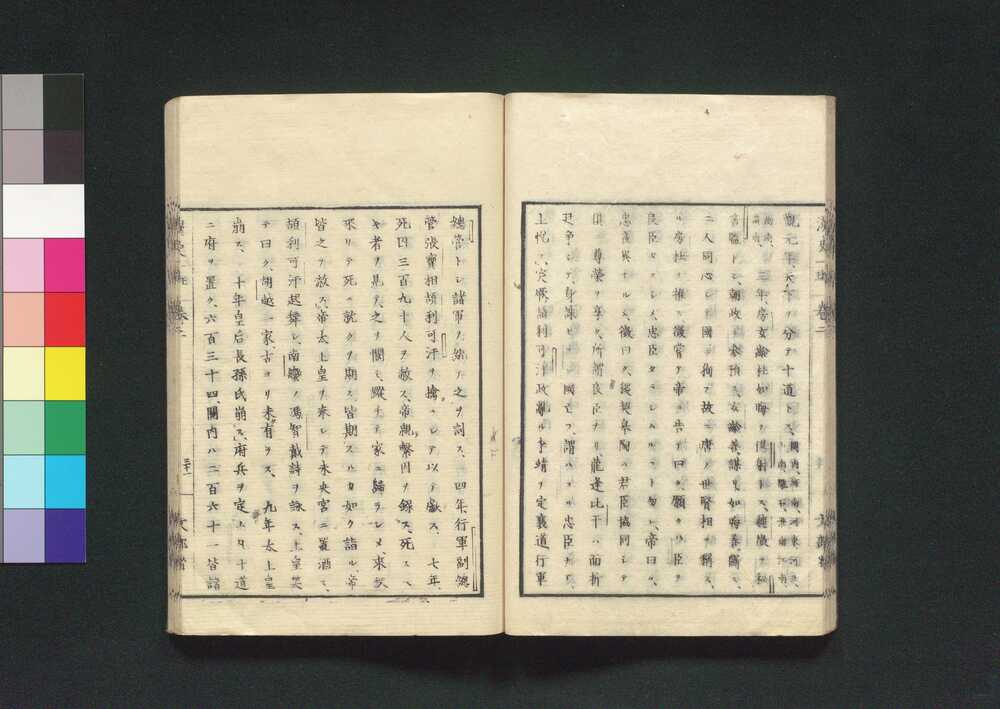 觀元年天下ヲ分テ十道トス、關內、河南、河東、河北、
山南、隴右、淮南、江南、
三年、房玄齡杜如晦ヲ僕射トス、魏徵ヲ秘
書監トシ、朝政ニ參預ス、玄齡善謀リ如晦善斷ス、
二人同心シテ國ニ徇フ、故ニ唐ノ世賢相ヲ稱ス、
房杜ヲ推ス、徵嘗テ帝ニ告テ曰ク、願クハ臣ヲ
良臣タラシメヨ、忠臣タラシムルコト勿レ、帝曰ク、
忠良異ナルカ、徵曰ク、稷契皋陶ハ君臣協同シテ
俱ニ尊榮ヲ享ク、所謂良臣ナリ、龍逢比干ハ面折
廷爭シテ、身誅セラレ國亡フ、謂ハユル忠臣ナリ、
上悅フ、突厥頡利可汗政亂ル、李靖ヲ定襄道行軍
總管トシ、諸軍ヲ統テ之ヲ討ス、四年、行軍副總
管張寶相頡利可汗ヲ擒ニシテ以テ獻ス、七年、
死囚三百九十人ヲ赦ス、帝親繫囚ヲ錄ス、死スヘ
キ者ヲ見テ、之ヲ閔ミ、縱テ家ニ歸ラシメ、來秋
來リテ死ニ就クヲ期ス、皆期スルカ如ク詣ル、帝
皆之ヲ赦ス、帝太上皇ヲ奉シテ未央宮ニ置酒シ、
頡利可汗起舞シ、南蠻ノ馮智戴詩ヲ詠ス、上皇笑
テ曰ク、胡越一家、古ヨリ未有ラス、九年、太上皇
崩ス、十年、皇后長孫氏崩ス、府兵ヲ定ム、凡十道
ニ府ヲ置ク、六百三十四、關內ハ二百六十一、皆諸
三十一
文部省